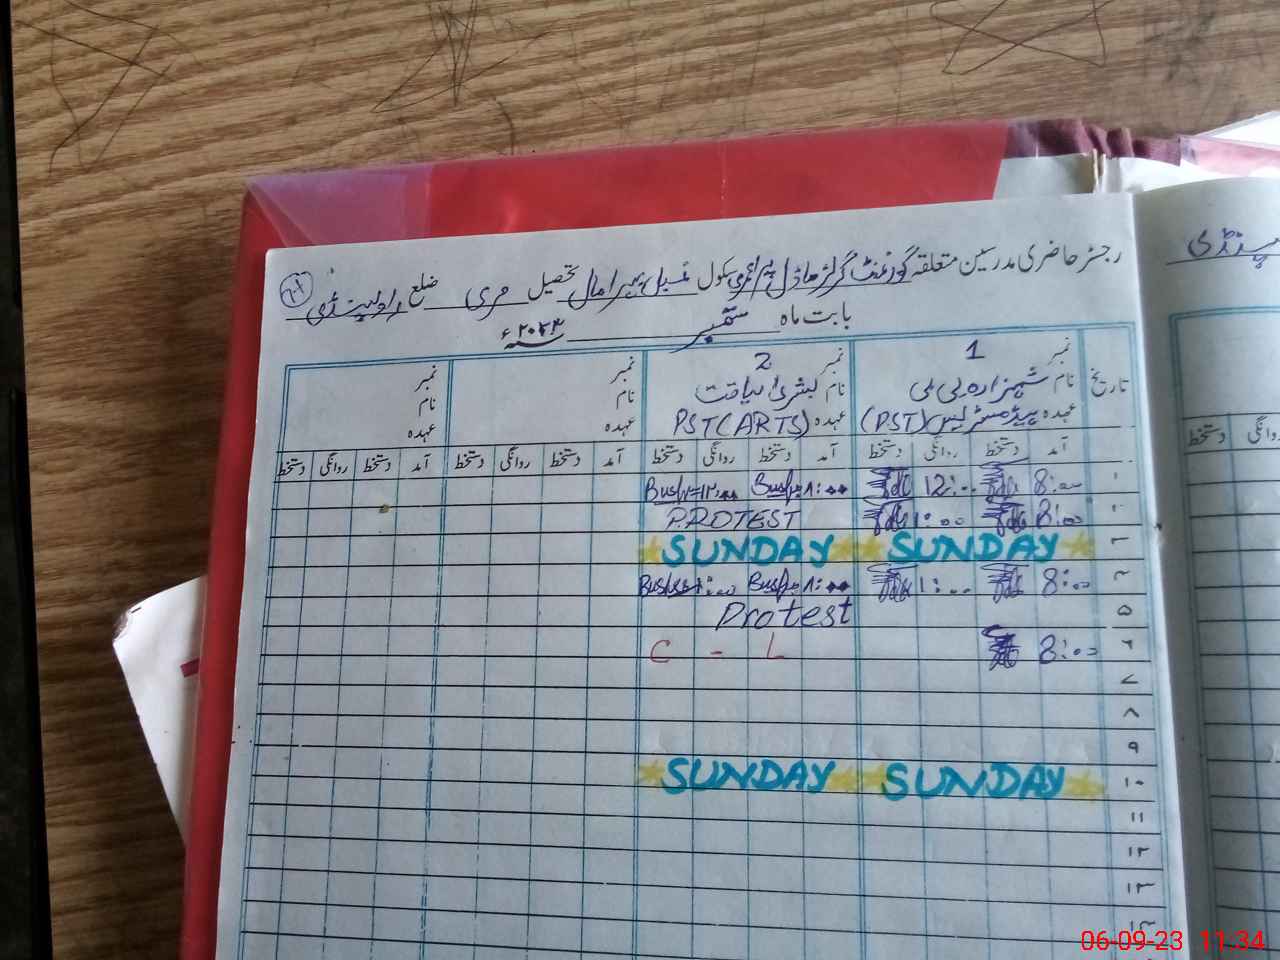 رجسٹر حاضری مدرسین متعلقہ گورنمنٹ گرلز ماڈل پرائمری سکول تحصیل مری ضلع راولپنڈی
بابت ماہ ستمبر سنہ ۲۰۲۳ء
تاریخ
نمبر 1
نام شہزادہ بی بی
عہدہ ہیڈمسٹریس (PST)
نمبر 2
نام بشریٰ لیاقت
عہدہ PST(ARTS)
نمبر
نام
عہدہ
نمبر
نام
عہدہ
آمد دستخط روانگی دستخط آمد دستخط روانگی دستخط آمد دستخط روانگی دستخط آمد دستخط روانگی دستخط
۱ 8:00 12:00 ۸:۰۰ ۱۲:۰۰
۲ 8:00 1:00 PROTEST
۳ SUNDAY SUNDAY
۴ 8:00 1:00 ۸:۰۰
۵ Protest
۶ 8:00 C - L
۷
۸
۹
۱۰ SUNDAY SUNDAY
۱۱
۱۲
۱۳
۱۴
پنڈی
روانگی دستخط
06-09-23 11:34